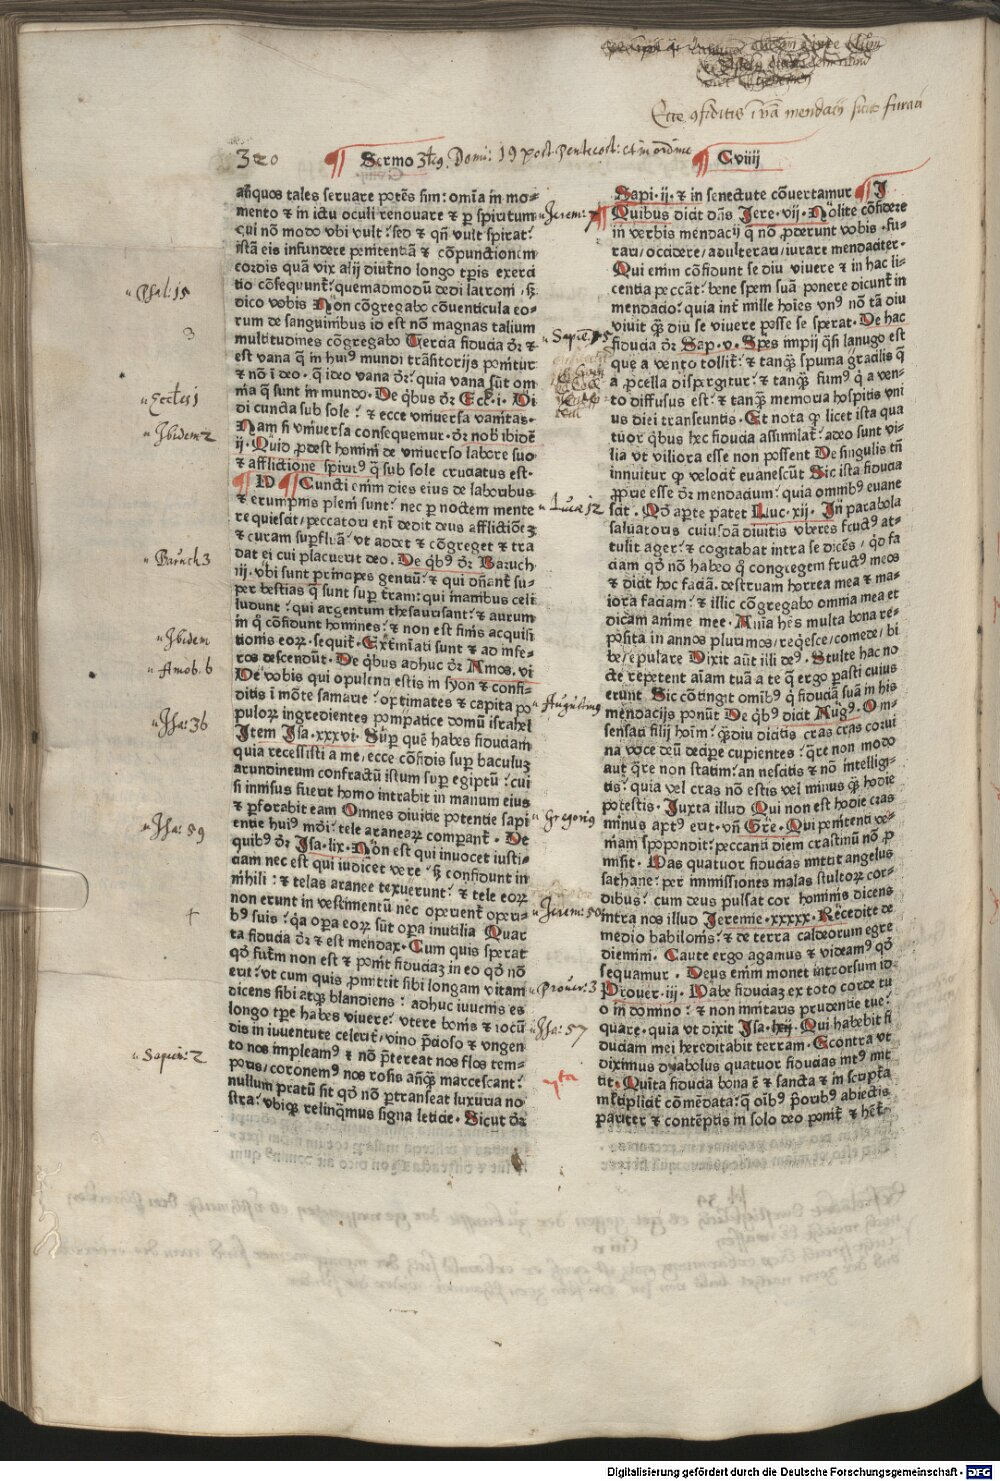 Ecce cōfiditis ī vā mendacij sicut furari
320
¶ Sermo 3tꝰ. Domi: 19 post Pentecost: et in ordine
¶ Cviiij
aliquos tales seruare potēs sim: omīa in mo-
mento ⁊ in ictu oculi renouare ⁊ ꝑ spiritum
qui nō modo vbi vult: sed ⁊ qn̄ vult spirat:
istā eis infundere penitentiā ⁊ cōpunctionem
cordis quā vix alij diut̄no longo tp̄is exerci
tio cōsequunt̄: quemadmodū dedi latroni, sꝫ
dico vobis Non cōgregabo cōuenticula eo-
rum de sanguinibus id est nō magnas talium
multitudines cōgregabo Tercia fiducia dr̄ ⁊
est vana q̄ in huiꝰ mundi trāsitorijs ponit̄ur
⁊ nō ī deo. q̄ ideo vana dr̄: quia vana sūt om
nia q̄ sunt in mundo. De qb̄us dr̄ Eccl̄. i. Vi
di cuncta sub sole: ⁊ ecce vniuersa vanitas.
Nam si vniuersa consequemur. dr̄ nob̄ ibidē
ij. Quid ꝓdest homini de vniuerso labore suo
⁊ afflictione spiritꝰ q̄ sub sole cruciatus est.
¶ D ¶ Cuncti enim dies eius de laboribus
⁊ erumpnis pleni sunt: nec ꝑ noctem mente
requiescit/peccatori enī dedit deus afflictiōeꝫ
⁊ curam suꝑfluā: vt addet ⁊ cōgreget ⁊ tra
dat ei cui placuerit deo. De qb̄ꝰ dr̄ Baruch
iij. vbi sunt principes gentiū: ⁊ qui dn̄ant̄ su-
per bestias q̄ sunt suꝑ t̄ram: qui in auibus celi
ludunt: qui argentum thesaurisant: ⁊ aurum
in q̄ cōfidunt homines: ⁊ non est finis acquisi
tionis eoꝝ. sequit̄. Ext̄miāti sunt ⁊ ad infe-
ros descendūt. De qb̄us adhuc dr̄ Amos. vi
Ve vobis qui opulenti estis in syon ⁊ confi-
ditis ī mōte samarie: optimates ⁊ capita po
puloꝝ ingredientes pompatice domū israhel
Item Isa. xxxvi. Suꝑ quē habes fiduciam
quia recessisti a me, ecce cōfidis suꝑ baculuꝫ
arundineum confractū istum suꝑ egiptū: cui
si innisus fuerit homo intrabit in manum eius
⁊ ꝑforabit eam Omnes diuitie potentie sapi
entie huiꝰ mōi: tele araneaꝝ compant̄. De
quibꝰ dr̄ Isa. lix. Non est qui inuocet iusti-
ciam nec est qui iudicet vere: sꝫ confidunt in
nihili: ⁊ telas aranee texuerunt: ⁊ tele eoꝝ
non erunt in vestimentū nec operient̄ operi-
bꝰ suis: qa oꝑa eoꝝ sūt oꝑa inutilia Quar
ta fiducia dr̄ ⁊ est mendax. Cum quis sperat
qd̄ fut̄m non est ⁊ ponit fiduciaꝫ in eo qd̄ nō
erit: vt cum quis ꝓmittit sibi longam vitam
dicens sibi atqꝫ blandiens: adhuc iuuenis es
longo tꝑe habes viuere: vtere bonis ⁊ iocū
dis in iuuentute celerit̄, vino p̄cioso ⁊ vngen
to nos impleamꝰ ⁊ nō p̄tereat nos flos tem-
poris, coronemꝰ nos rosis an̄qꝫ marcescant:
nullum pratū sit qd̄ nō ꝑtranseat luxuria no
stra: vbiqꝫ relinqm̄us signa leticie. Sicut dr̄
Sapi. ij. ⁊ in senectute cōuertamur ¶ J
¶ Quibus dicit dn̄s Jere. vij. Nolite cōfidere
in verbis mendacij q̄ nō ꝓderunt vobis. fu-
rari/occidere/adulterari/iurare mendaciter.
Qui enim cōfidunt se diu viuere ⁊ in hac li-
centia peccāt: bene spem suā ponere dicunt̄ in
mendacio: quia int̄ mille hoīes vnꝰ nō tā diu
viuit qꝫ diu se viuere posse se sperat. De hac
fiducia dr̄ Sap. v. Spes impij q̄si lanugo est
que a vento tollit̄: ⁊ tanqꝫ spuma gracilis q̄
a ꝓcella dispergitur: ⁊ tanqꝫ fumꝰ q̄ a ven-
to diffusus est: ⁊ tanqꝫ memoria hospitis vni
us diei transeuntis. Et nota ꝙ licet ista qua
tuor qb̄us hec fiducia assimilat̄: adeo sunt vi-
lia vt viliora esse non possent De singulis tn̄
innuitur ꝙ velocit̄ euanescūt Sic ista fiducia
ꝓprie esse dr̄ mendacium: quia omnibꝰ euane
scit. Qd̄ aꝑte patet Luc. xij. In parabola
saluatoris cuiusdā diuitis vberes fructꝰ at-
tulit ager: ⁊ cogitabat intra se dicēs, qd̄ fa
ciam qd̄ nō habeo q̄ congregem fructꝰ meos
⁊ dicit hoc faciā. destruam horrea mea ⁊ ma-
iora faciam: ⁊ illic cōgregabo omnia mea et
dicam anime mee. Aīma hēs multa bona re-
posita in annos plurimos/reqesce/comede/bi
be/epulare Dixit aūt illi deꝰ. Stulte hac no
cte repetent aīam tuā a te q̄ ergo ꝑasti cuius
erunt Sic cōtingit omībꝰ q̄ fiduciā suā in his
mendacijs ponūt De qb̄ꝰ dicit Augꝰ. O in-
sensati filij hoīm: qꝫdiu dicitis cras cras corui
na voce deū decipe cupientes: qr̄e non modo
aut qr̄e non statim: an nescitis ⁊ nō intelligi-
tis: quia vel cras nō estis vel minus qꝫ hodie
potestis. Juxta illud Qui non est hodie cras
minus aptꝰ erit. vn̄ Gre. Qui penitenti ve-
niam spopondit: peccanti diem crastinū nō ꝓ
misit. Has quatuor fiducias mittit angelus
sathane: per immissiones malas stultoꝝ cor-
dibus: cum deus pulsat cor hominis dicens
intra nos illud Jeremie. xxxxx. Recedite de
medio babilonis: ⁊ de terra caldeorum egre
diemini. Caute ergo agamus ⁊ videamꝰ qd̄
sequamur. Deus enim monet introrsum id
Prouer. iij. Habe fiduciaꝫ ex toto corde tu
o in domino: ⁊ non innitaris prudentie tue:
quare. quia vt dixit Isa. lvij. Qui habebit fi
duciam mei hereditabit terram. Econtra vt
diximus dyabolus quatuor fiducias mtꝰ mit
tit. Quīta fiducia bona ē ⁊ sancta ⁊ in scriptā
ml̄tiplicit̄ cōmēdata: q̄ oīb̄ꝰ p̄orib̄ꝰ abiectis
pariter ⁊ contēptis in solo deo ponit̄ ⁊ het̄.
Psal: 15
3
Eccl̄es 1
Ibidem 2
Baruch 3
Ibidem
Amos. 6
Isa: 36
Isa: 59
Sapien: 2
Jerem: 7
Sapiē: 5
Luca 12
Augustinꝰ
Gregoriꝰ
Jerem: 50
Prouer: 3
Isa: 57
5ta
Digitalisierung gefördert durch die Deutsche Forschungsgemeinschaft - DFG